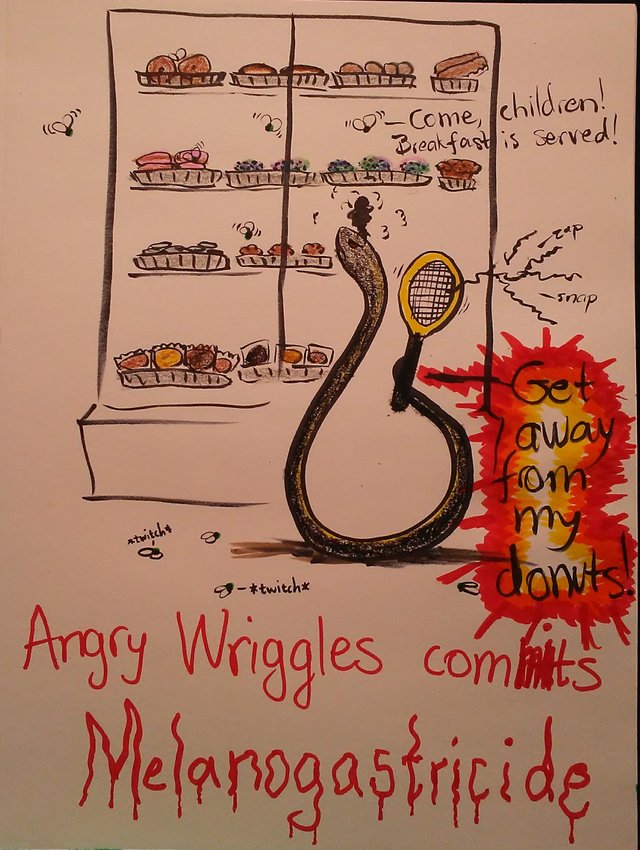 —Come, children!
Breakfast is served!
zap
snap
Get
away
from
my
donuts!
*twitch*
*twitch*
Angry Wriggles commits
Melanogastricide